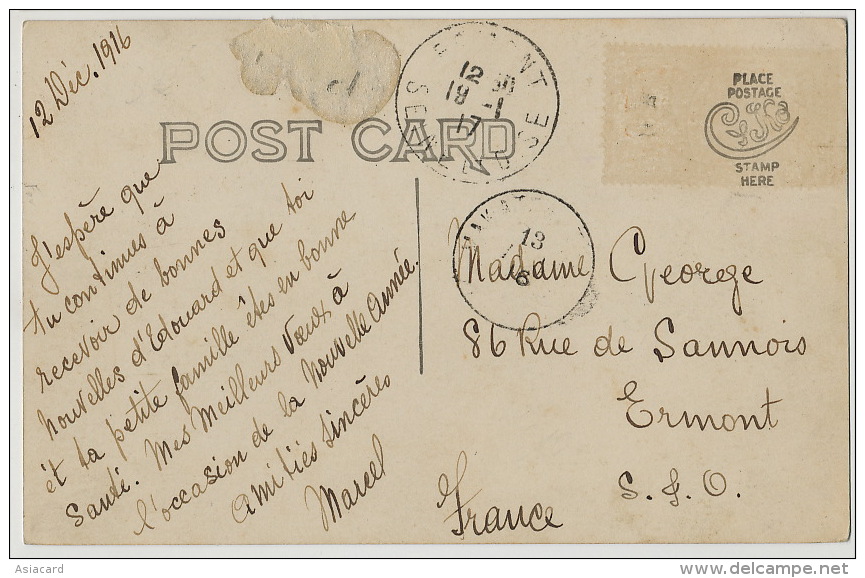 12 Déc. 1916
POST CARD
PLACE
POSTAGE
STAMP
HERE
12 30
18 -1
17
13
J'espère que
tu continues à
recevoir de bonnes
nouvelles d'Edouard et que toi
et ta petite famille êtes en bonne
santé. Mes Meilleurs Vœux à
l'occasion de la nouvelle année.
Amitiés sincères
Marcel
Madame George
86 Rue de Sannois
Ermont
S. & O.
France
Asiacard
www.delcampe.net